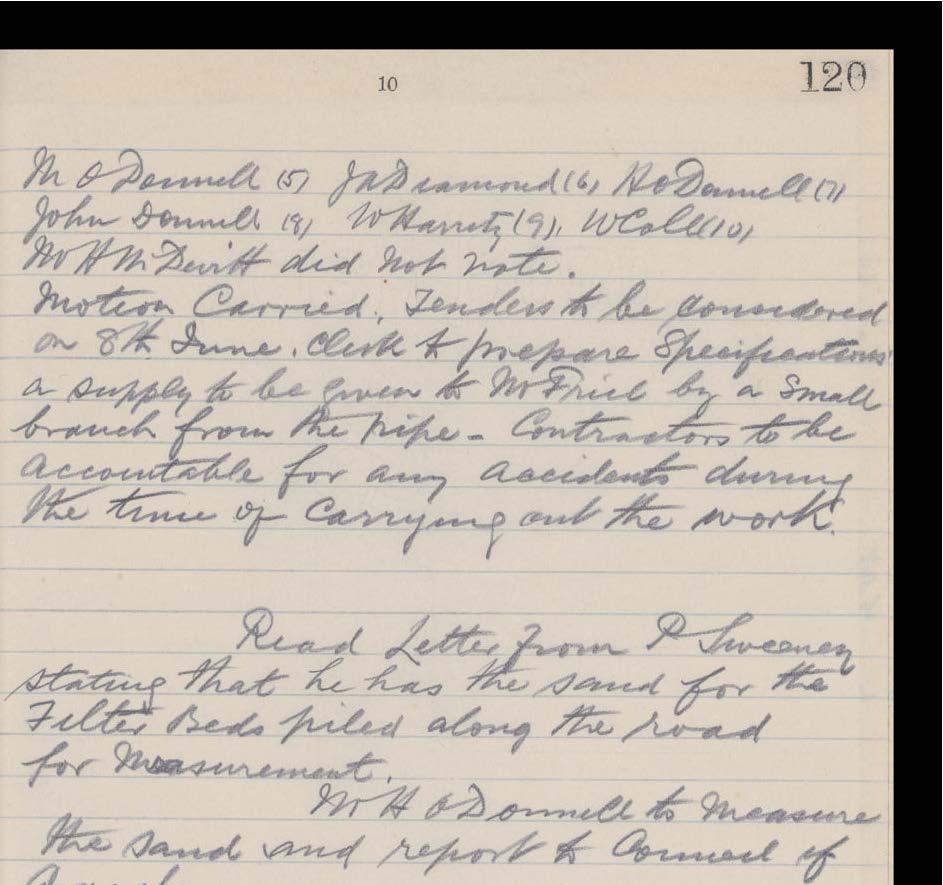 10
120
M O Donnell (5) J A Diamond (6) H O Donnell (7)
John Donnell (8) W Harrity (9), W Coll (10)
Mr H McDevitt did not vote.
Motion Carried. Tenders to be considered
on 8th June. Clerk to prepare Specifications
a supply to be given to Mr Friel by a Small
branch from the pipe - Contractors to be
accountable for any accidents during
the time of Carrying out the work.
Read Letter from P Sweeney
stating that he has the sand for the
Filter Beds piled along the road
for Measurement.
Mr H O Donnell to Measure
the sand and report to Council if